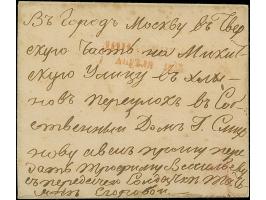 Въ Городъ Москву въ Твер
скую Часть на Микит
скую Улицу въ Хлы-
новъ переулокъ въ Соб
ственный Домъ Г. Смир
нову а васъ прошу пере
дать Трофиму
съ передачею Солдаткѣ
Егоровой